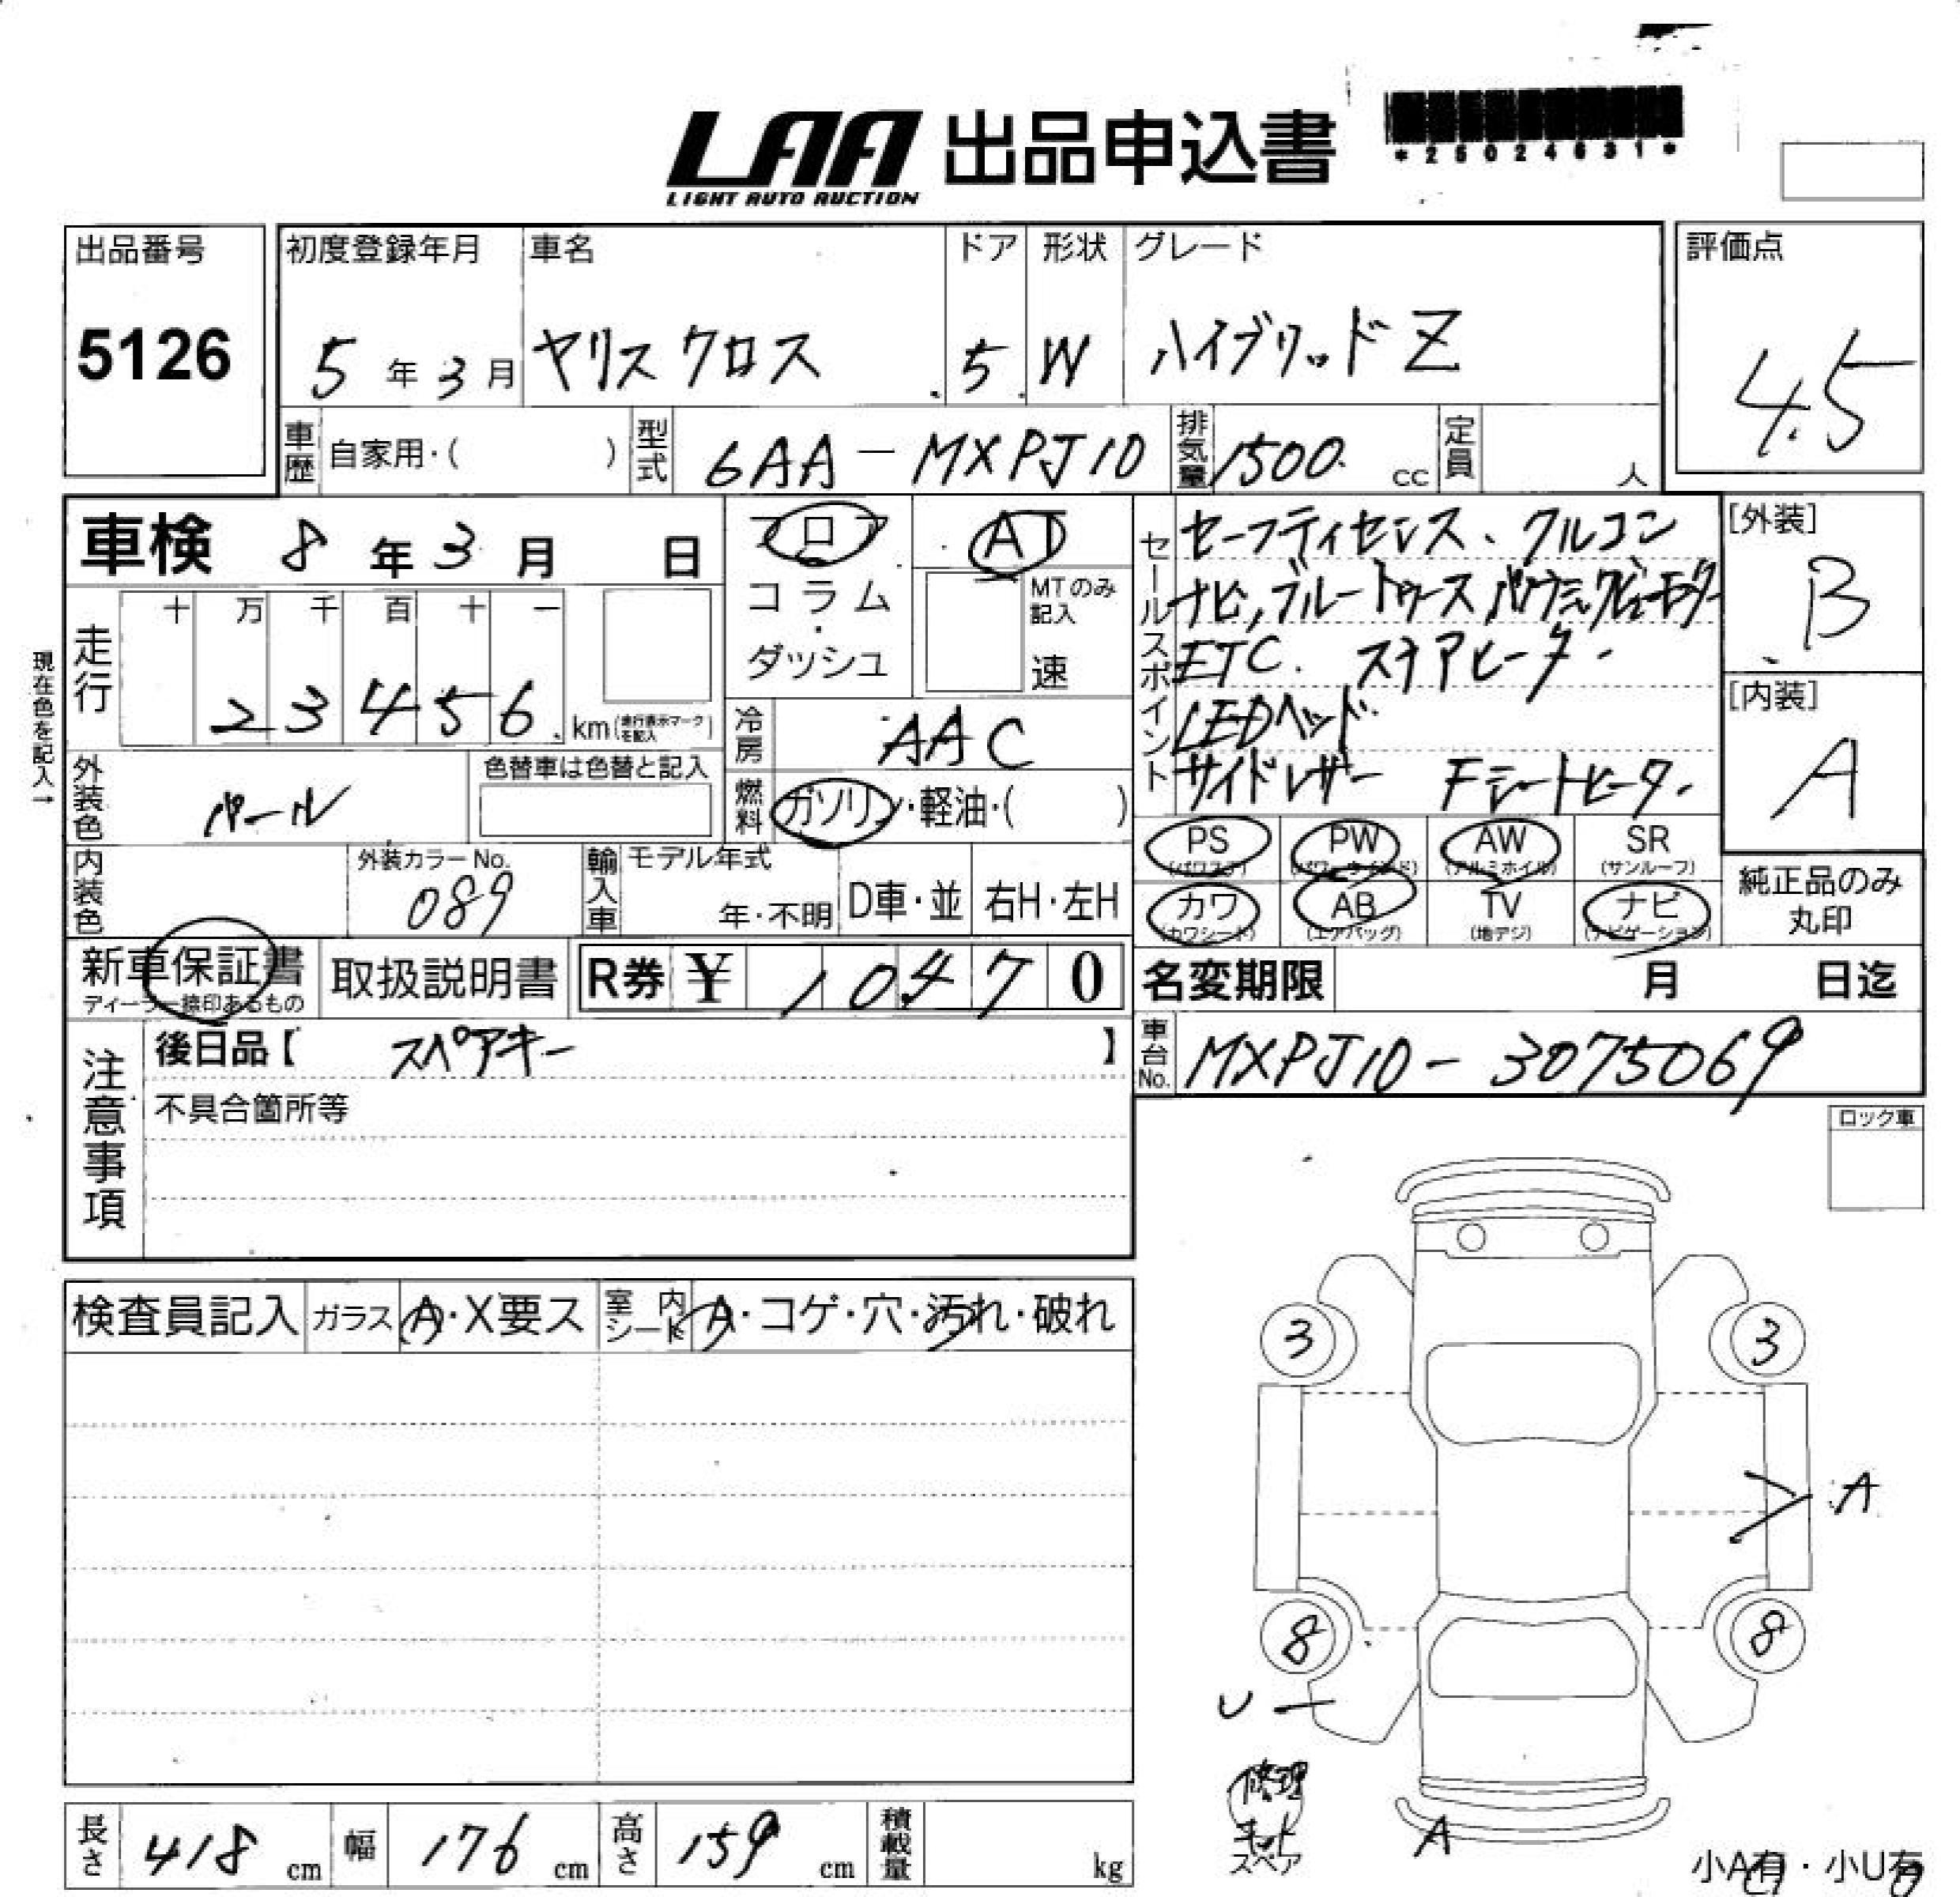 LAA 出品申込書
LIGHT AUTO AUCTION
*25024631*
出品番号
5126
初度登録年月
5年3月
車名
ヤリスクロス
ドア
5
形状
W
グレード
ハイブリッドZ
評価点
4.5
車歴 自家用・( )
型式 6AA-MXPJ10
排気量 1500 cc
定員 人
車検 8年3月 日
フロア
コラム・
ダッシュ
AT
MTのみ記入
速
セールスポイント
セーフティセンス、クルコン
ナビ,ブルートゥース パノラミックビューモニター
ETC. ステアヒーター
LEDヘッド
サイドレザー Fシートヒーター
[外装]
B
[内装]
A
現在色を記入→
走行
十 万 千 百 十 一
2 3 4 5 6 km (走行表示マークを記入)
冷房 AAC
外装色 パール
色替車は色替と記入
燃料 ガソリン・軽油・( )
PS (パワステ)
PW (パワーウインド)
AW (アルミホイル)
SR (サンルーフ)
カワ (カワシート)
AB (エアバッグ)
TV (地デジ)
ナビ (ナビゲーション)
純正品のみ
丸印
内装色
外装カラーNo.
089
輸入車
モデル年式
年・不明
D車・並
右H・左H
新車保証書
ディーラー捺印あるもの
取扱説明書
R券 ¥ 10470
名変期限 月 日迄
注意事項
後日品【 スペアキー 】
不具合箇所等
車台No. MXPJ10-3075069
ロック車
検査員記入
ガラス A・X要ス
室内シート A・コゲ・穴・汚れ・破れ
3
3
A
8
8
U
修理
キット
スペア
A
長さ 418 cm
幅 176 cm
高さ 159 cm
積載量 kg
小A有・小U有